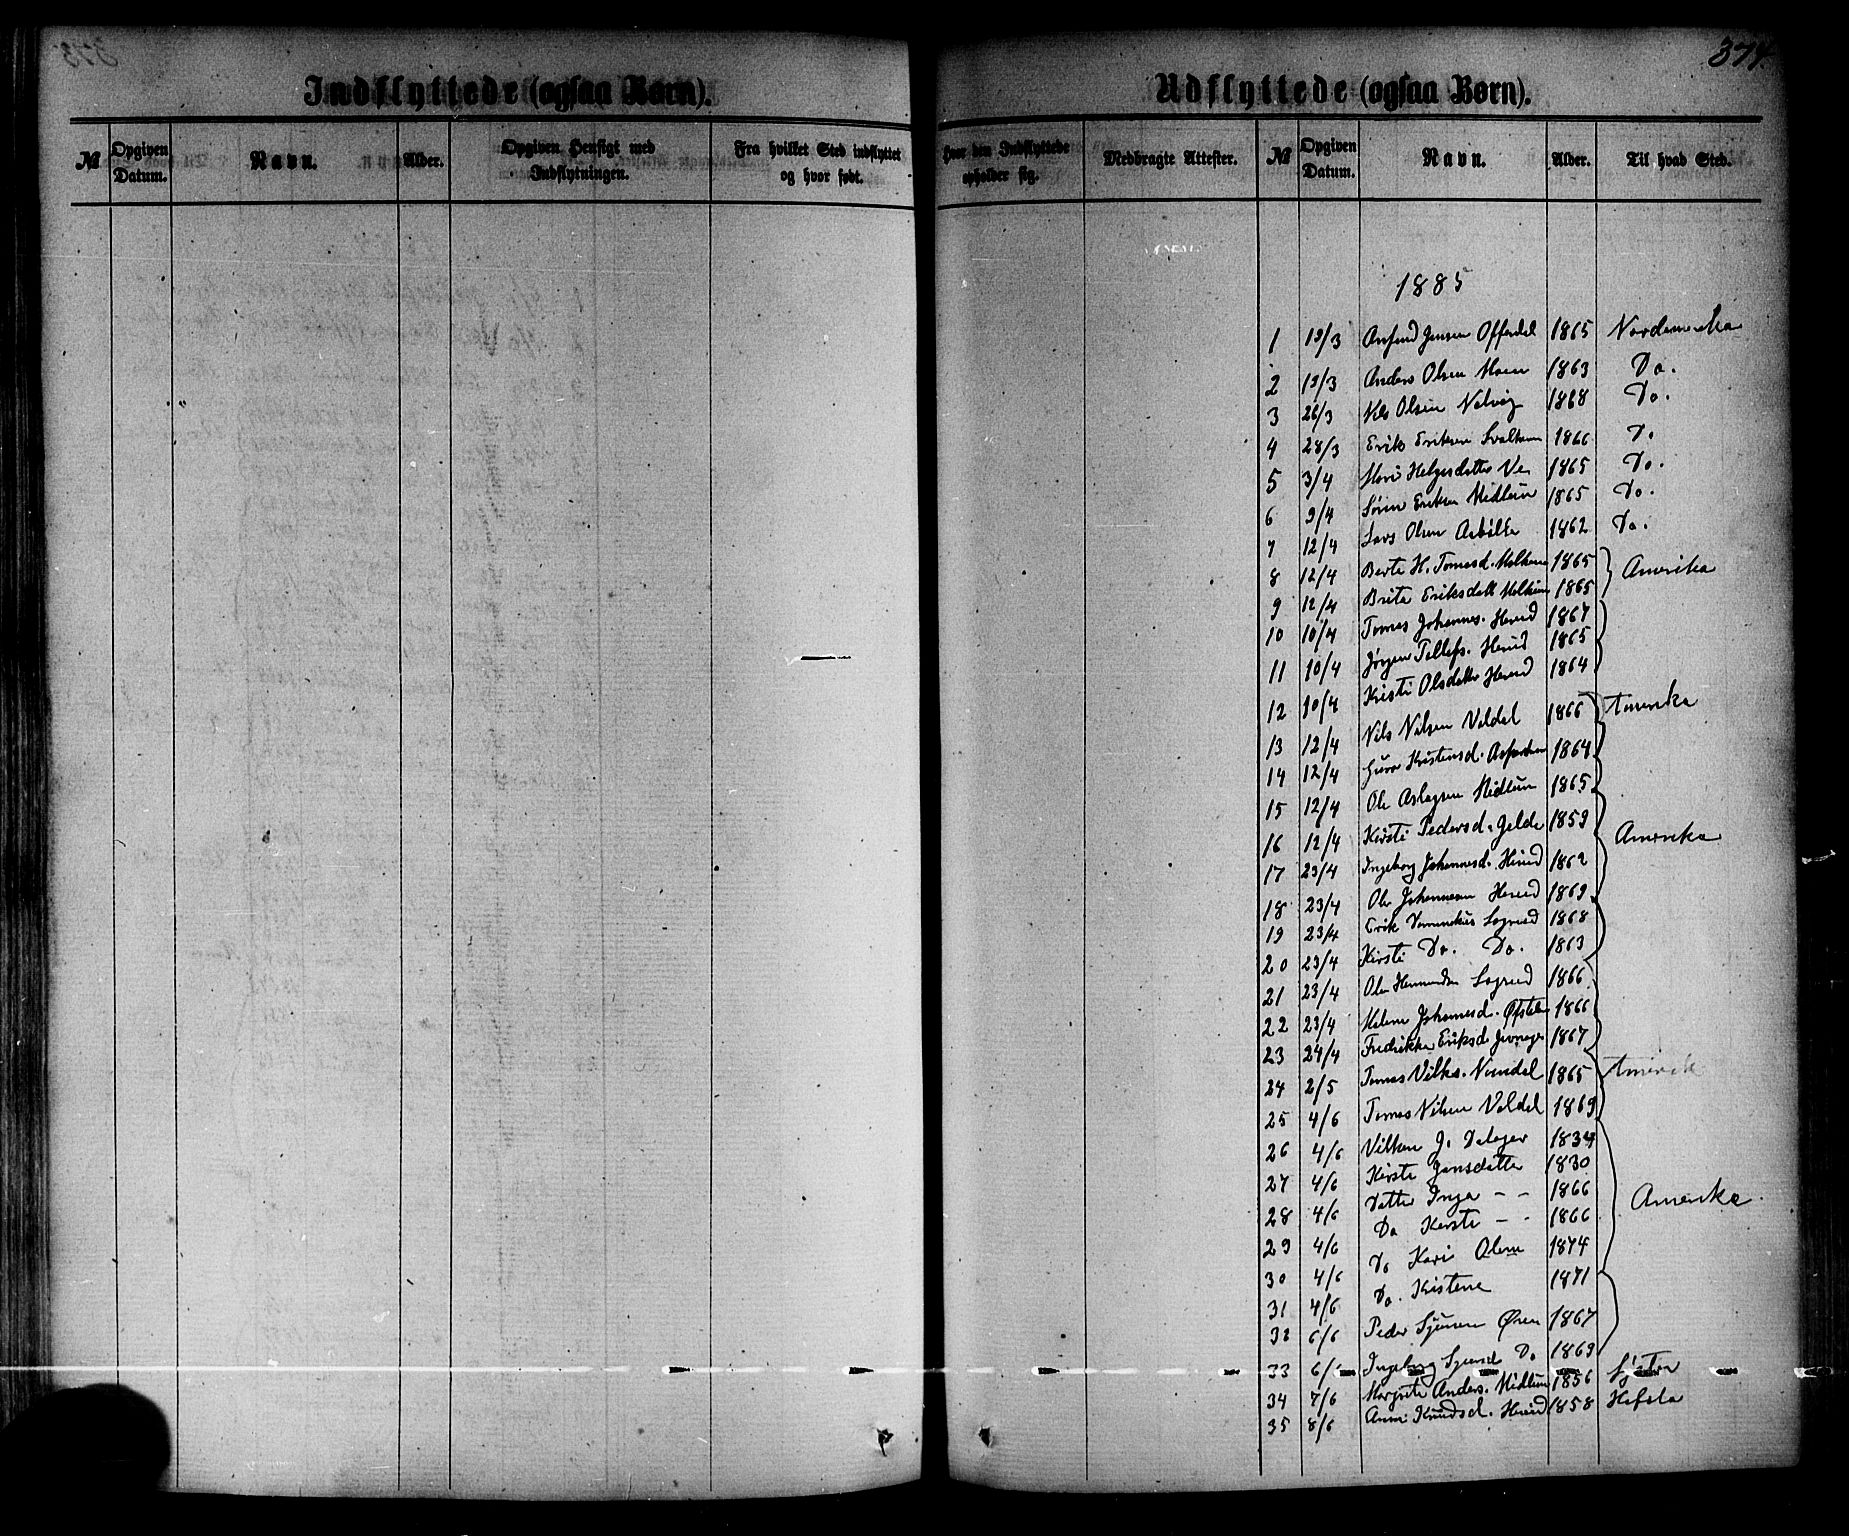 374
Indflyttede (ogsaa Børn).
№ Opgiven Datum. Navn. Alder. Opgiven Hensigt med Indflytningen. Fra hvilket Sted indflyttet og hvor født.
Udflyttede (ogsaa Børn).
Hvor den Indflyttede opholder sig. Medbragte Attester. № Opgiven Datum. Navn. Alder. Til hvad Sted.
1885
1 13/3 Anfind Jensen Offerdal 1865 Nordamerika
2 13/3 Anders Olsen Moen 1863 Do.
3 26/3 Nils Olsen 1868 Do.
4 28/3 Erik Eriksen 1866 Do
5 3/4 Mari Helgesdatter Ve 1865 Do.
6 9/4 Søren Eriksen Midlun 1865 Do.
7 12/4 Lars Olsen 1862 Do.
8 12/4 Berte H. Tomasd. 1865 Amerika
9 12/4 Brita Eriksdatt 1865
10 10/4 Tomas Johannes. Hereid 1867
11 10/4 Jørgen Tollefs. Hereid 1865
12 10/4 Kristi Olsdatter Hereid 1864 Amerika
13 12/4 Nils Nilsen Veldal 1866
14 12/4 Guro Kristensd. 1864
15 12/4 Ole Aslagsen Midlun 1865
16 12/4 Kirsti Pedersd. Gelde 1859 Amerika
17 23/4 Ingeborg Johannesd. Hereid 1862
18 23/4 Ole Johannesen Hereid 1869
19 23/4 Erik 1868
20 23/4 Kirsti Do. Do. 1863
21 23/4 Ole 1866
22 23/4 Johannesd. 1866
23 24/4 Fredrikke Eriksd. 1867
24 2/5 Tomas Vilks. Nundal 1865 Amerik
25 4/6 Tomas Nilsen Veldal 1869
26 4/6 Vilken J. Dalager 1834
27 4/6 Kirste Jansdatter 1830
28 4/6 Datter Inga - - 1866 Amerika
29 4/6 Do Kerste - - 1866
30 4/6 Do Kari Olsen 1874
31 4/6 Do. Kristene 1871
32 6/6 Peder Sjursen Øren 1867
33 6/6 Ingeborg Sjursd Do 1869
34 7/6 Margrete Anders. Midlun 1856
35 8/6 Anne Knudsd. Hereid 1858 Hafslo